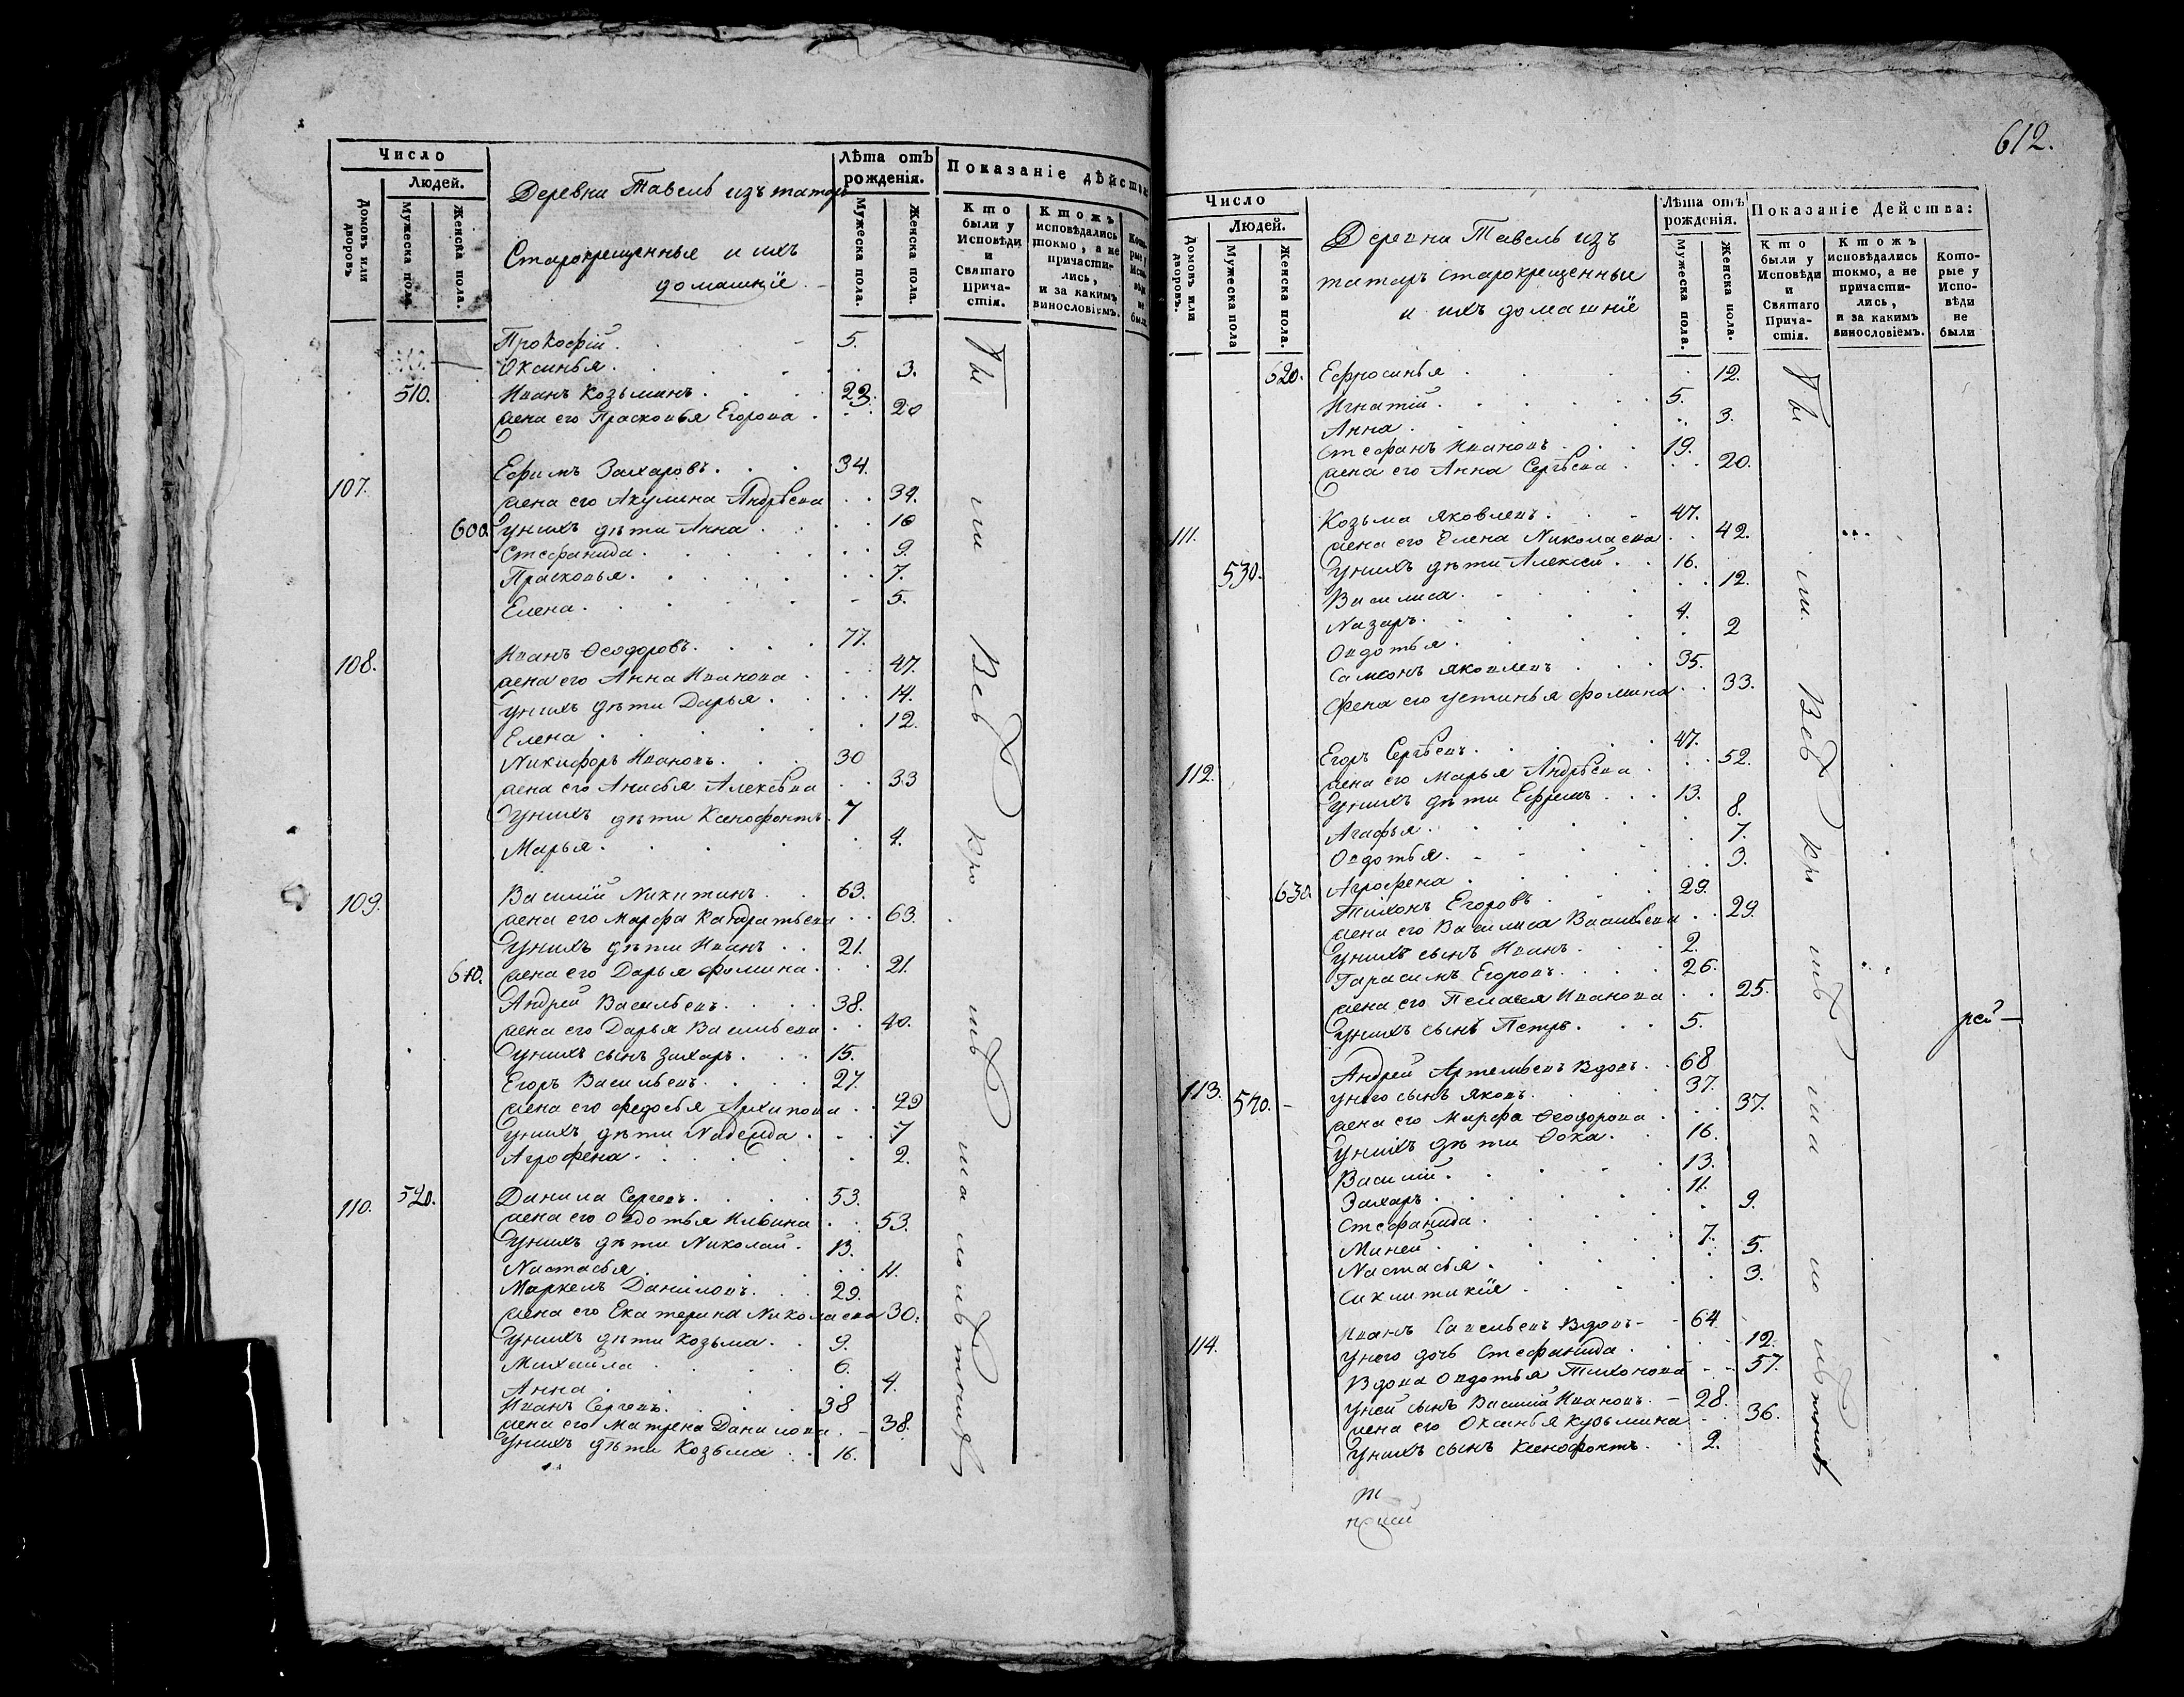 Число
Людей.
Домовъ или дворовъ
Мужеска пола.
Женска пола.
Деревни Тавель изъ татаръ
Старокрещенныя и ихъ
домашнїе
Лѣта отъ рожденія.
Мужеска пола.
Женска пола.
Показаніе дѣйства
Кто были у Исповѣди и Святаго Прича-стія.
Ктожъ исповѣдались токмо, а не причасти-лись, и за какимъ винословіемъ.
Прокофїй . 5.
Оксинья . 3.
510. Иванъ Козьминъ . 23.
жена его Прасковья Егорова . 20
107. Ефимъ Захаровъ . 34.
жена его Акулина Андрѣева . 34.
600 у нихъ дѣти Анна . 10
Стефанида . 9.
Прасковья . 7.
Елена . 5.
108. Иванъ Ѳеодоровъ . 77.
жена его Анна Иванова . 47.
у нихъ дѣти Дарья . 14.
Елена . 12.
Никифоръ Ивановъ . 30
жена его Анисья Алексѣева . 33
у нихъ дѣти Ксенофонтъ . 7
Марья . 4.
109. Василїй Никитинъ . 63.
жена его Марфа Кандратьева . 63.
у нихъ дѣти Иванъ . 21.
610. жена его Дарья Фомина . 21.
Андрей Васильевъ . 38.
жена его Дарья Васильева . 40.
у нихъ сынъ Захаръ . 15.
Егоръ Васильевъ . 27.
жена его Федосья Архипова . 29
у нихъ дѣти Надежда . 7
Агрофена . 2.
110. 520. Данила Сергеевъ . 53.
жена его Овдотья Ильина . 53.
у нихъ дѣти Николай . 13.
Настасья . 11.
Маркелъ Даниловъ . 29.
жена его Екатерина Николаева 30.
у нихъ дѣти Козьма . 9.
Михайла . 6.
Анна . 4.
Иванъ Сергеевъ . 38
жена его Матрена Данилова . 38.
у нихъ дѣти Козьма . 16.
612.
Число
Людей.
Домовъ или дворовъ.
Мужеска пола
Женска пола.
Деревни Тавель изъ
татаръ старокрещенные
и ихъ домашнїе
Лѣта отъ рожденія.
Мужеска пола.
Женска пола.
Показаніе Действа:
Кто были у Исповѣди и Святаго Прича-стія.
Ктожъ исповѣдались токмо, а не причасти-лись, и за какимъ винословіемъ.
Кото-рые у Испо-вѣди не были
620. Ефросинья . 12.
Игнатїй . 5.
Анна . 3.
Стефанъ Ивановъ . 19.
жена его Анна Сергѣева . 20.
111. Козьма Яковлевъ . 47.
жена его Елена Николаева . 42.
530. у нихъ дѣти Алексей . 16.
Василиса . 12.
Назаръ . 4.
Овдотья . 2
Самсонъ Яковлевъ . 35.
жена его Устинья Фомина . 33.
112. Егоръ Сергѣевъ . 47.
жена его Марья Андрѣева . 52.
у нихъ дѣти Ефремъ . 13.
Агафья . 8.
Овдотья . 7.
630. Агрофена . 3.
Тихонъ Егоровъ . 29.
жена его Василиса Васильева . 29.
у нихъ сынъ Иванъ . 2.
Гарасимъ Егоровъ . 26.
жена его Пелагея Иванова . 25.
у нихъ сынъ Петръ . 5.
113. Андрей Артемьевъ вдовъ . 68
540. у него сынъ Яковъ . 37.
жена его Марфа Ѳеодорова . 37.
у нихъ дѣти Ѳока . 16.
Василїй . 13.
Захаръ . 11.
Стефанида . 9.
Миней . 7.
Настасья . 5.
Сиклитикїя . 3.
114. Иванъ Савельевъ вдовъ - 64
у него дочь Стефанида . 12.
Вдова Овдотья Тихонова - 57.
у ней сынъ Василїй Ивановъ - 28.
жена его Оксинья Кузьмина - 36.
у нихъ сынъ Ксенофонтъ . 2.
рей